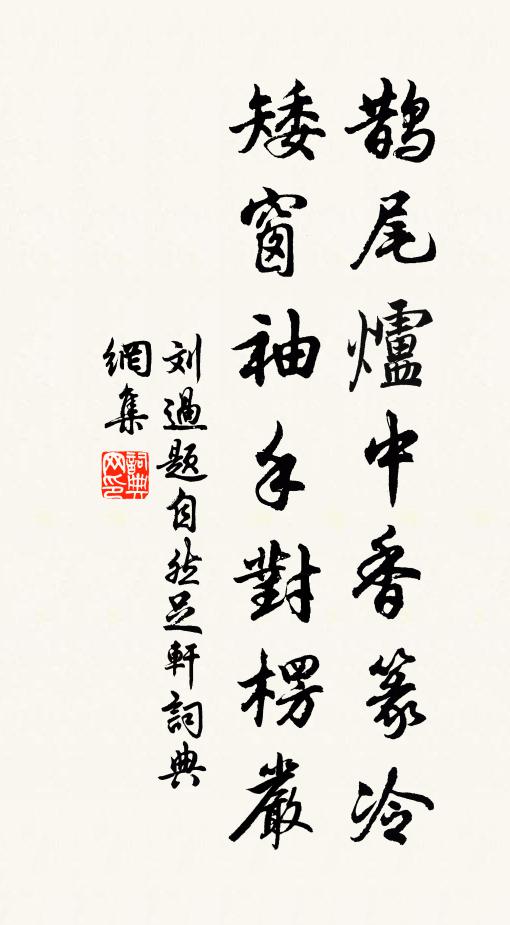 鹊尾爐中香篆冷
矮窗袖手對楞嚴
刘過题自然足軒詞典
網集
詞典网印